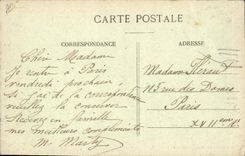 CARTE POSTALE
CORRESPONDANCE
ADRESSE
Chère Madame
Je rentre à Paris
vendredi prochain
de la correspondance
veuillez la conserver
Recevez en famille
mes meilleurs compliments
M. Marty
Madame Pléraut
113 rue des Dames
Paris
XVIIeme